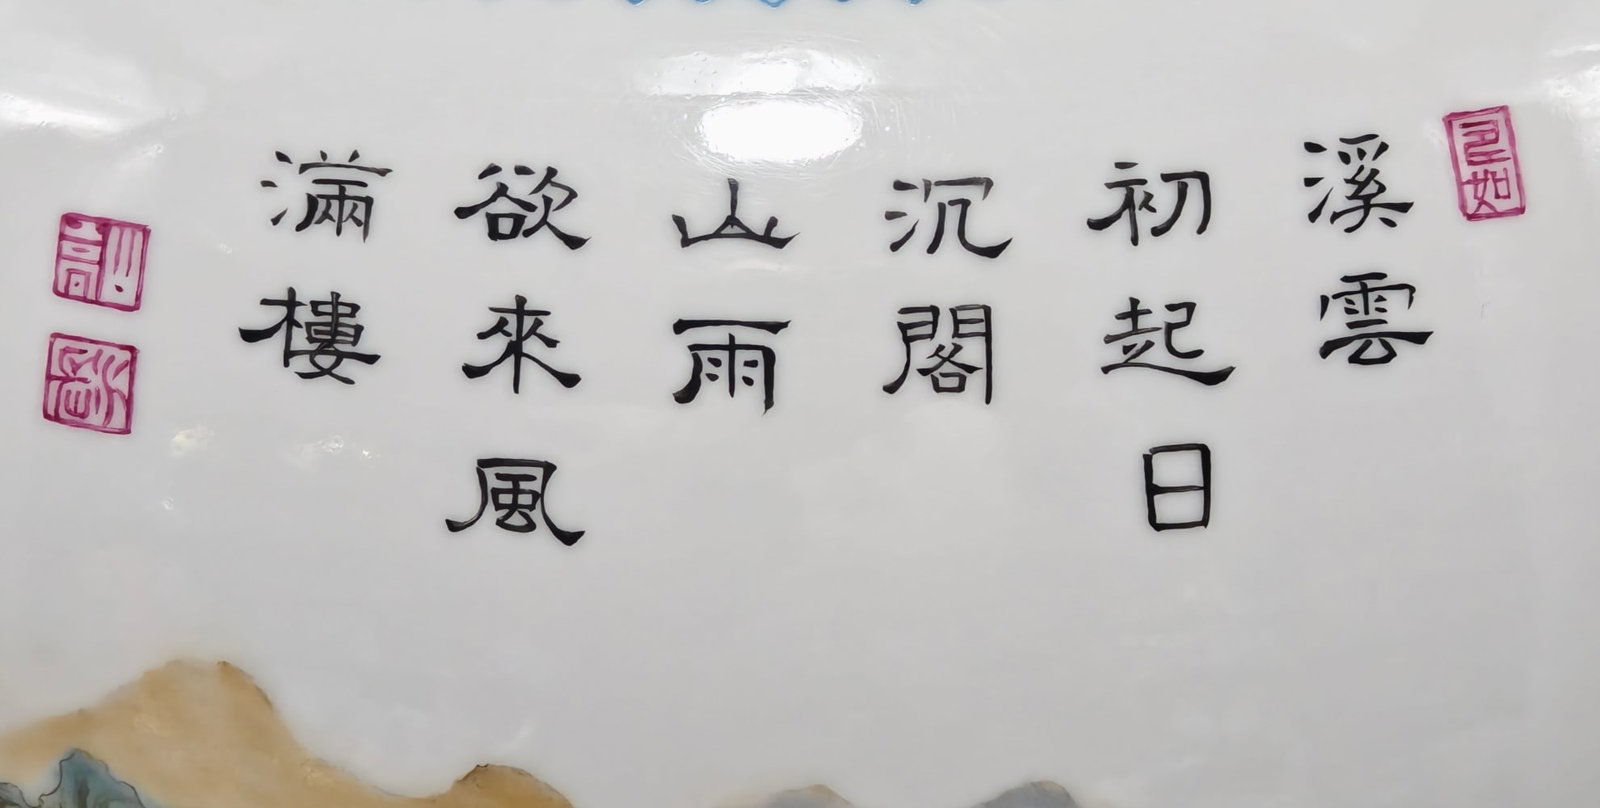 溪雲
初起日
沉閣
山雨
欲來風
滿樓